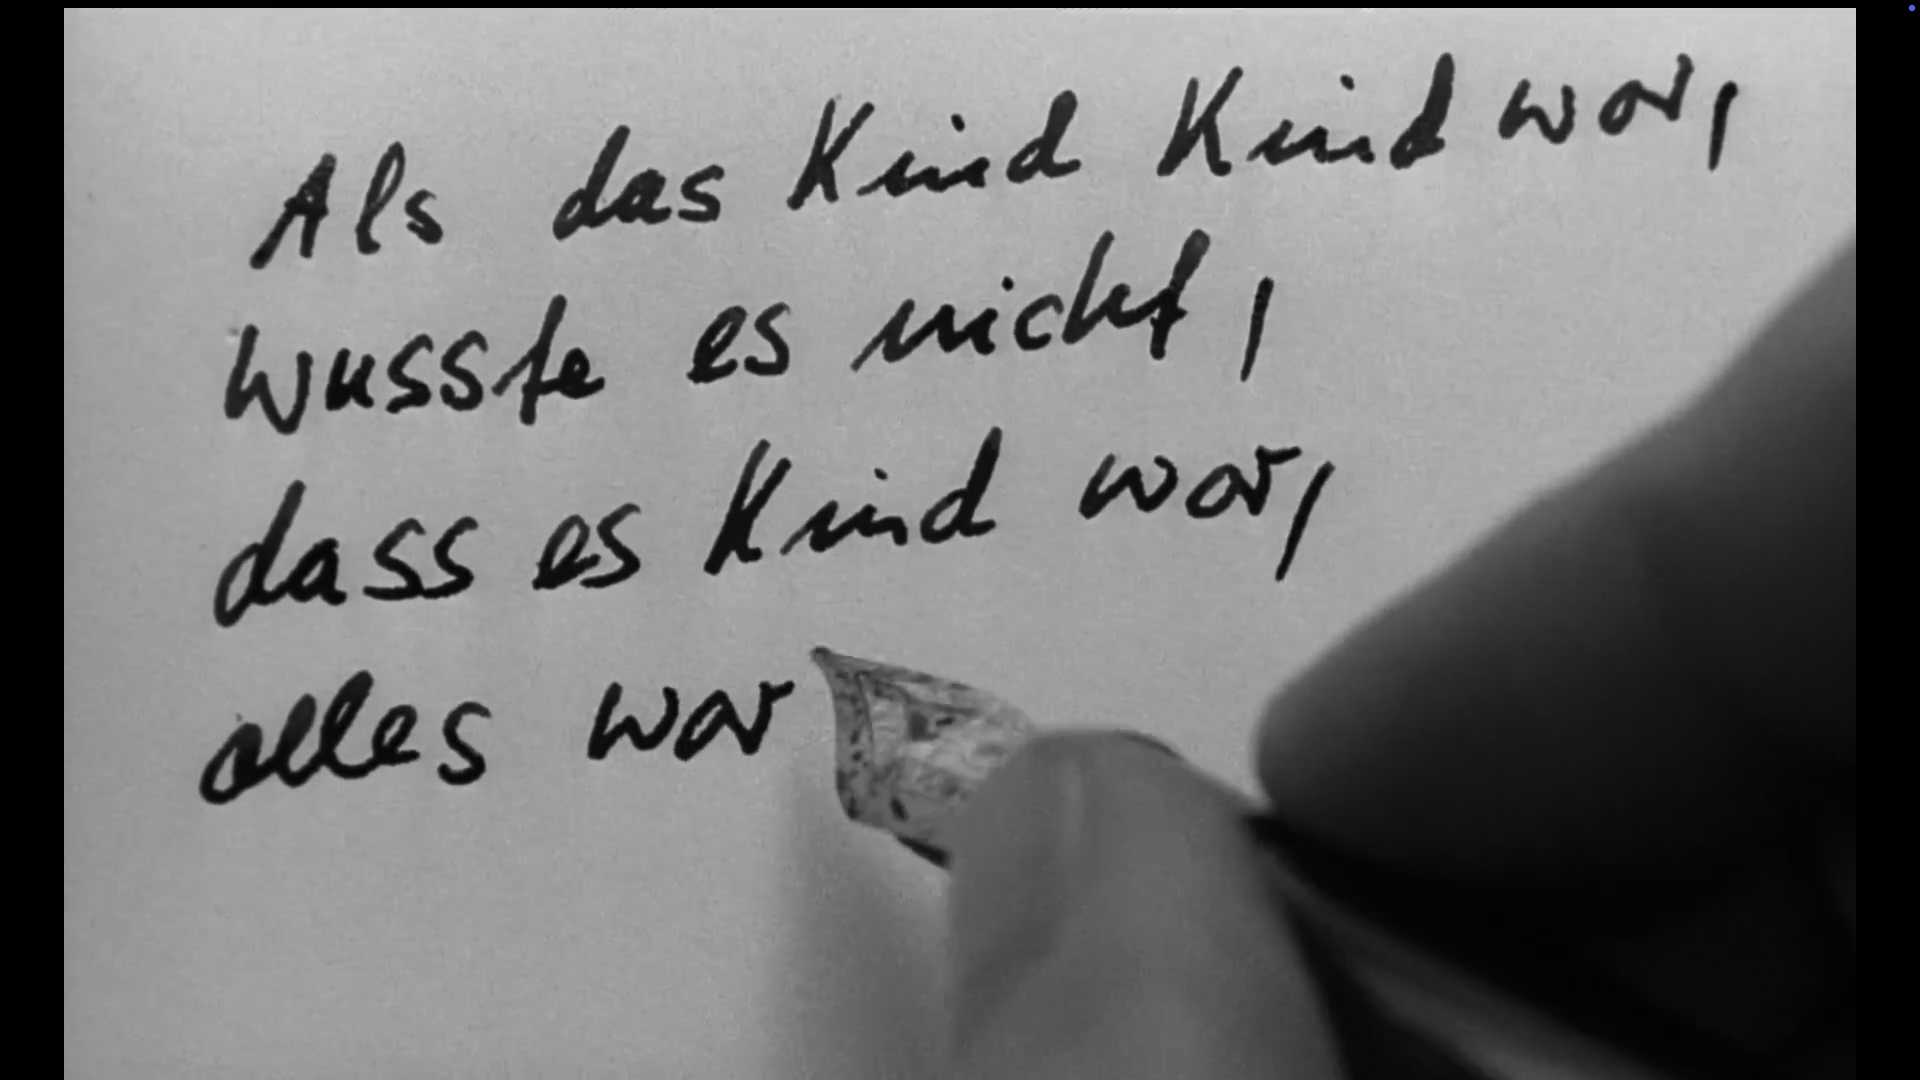 Als das Kind Kind war,
wusste es nicht,
dass es Kind war,
alles war